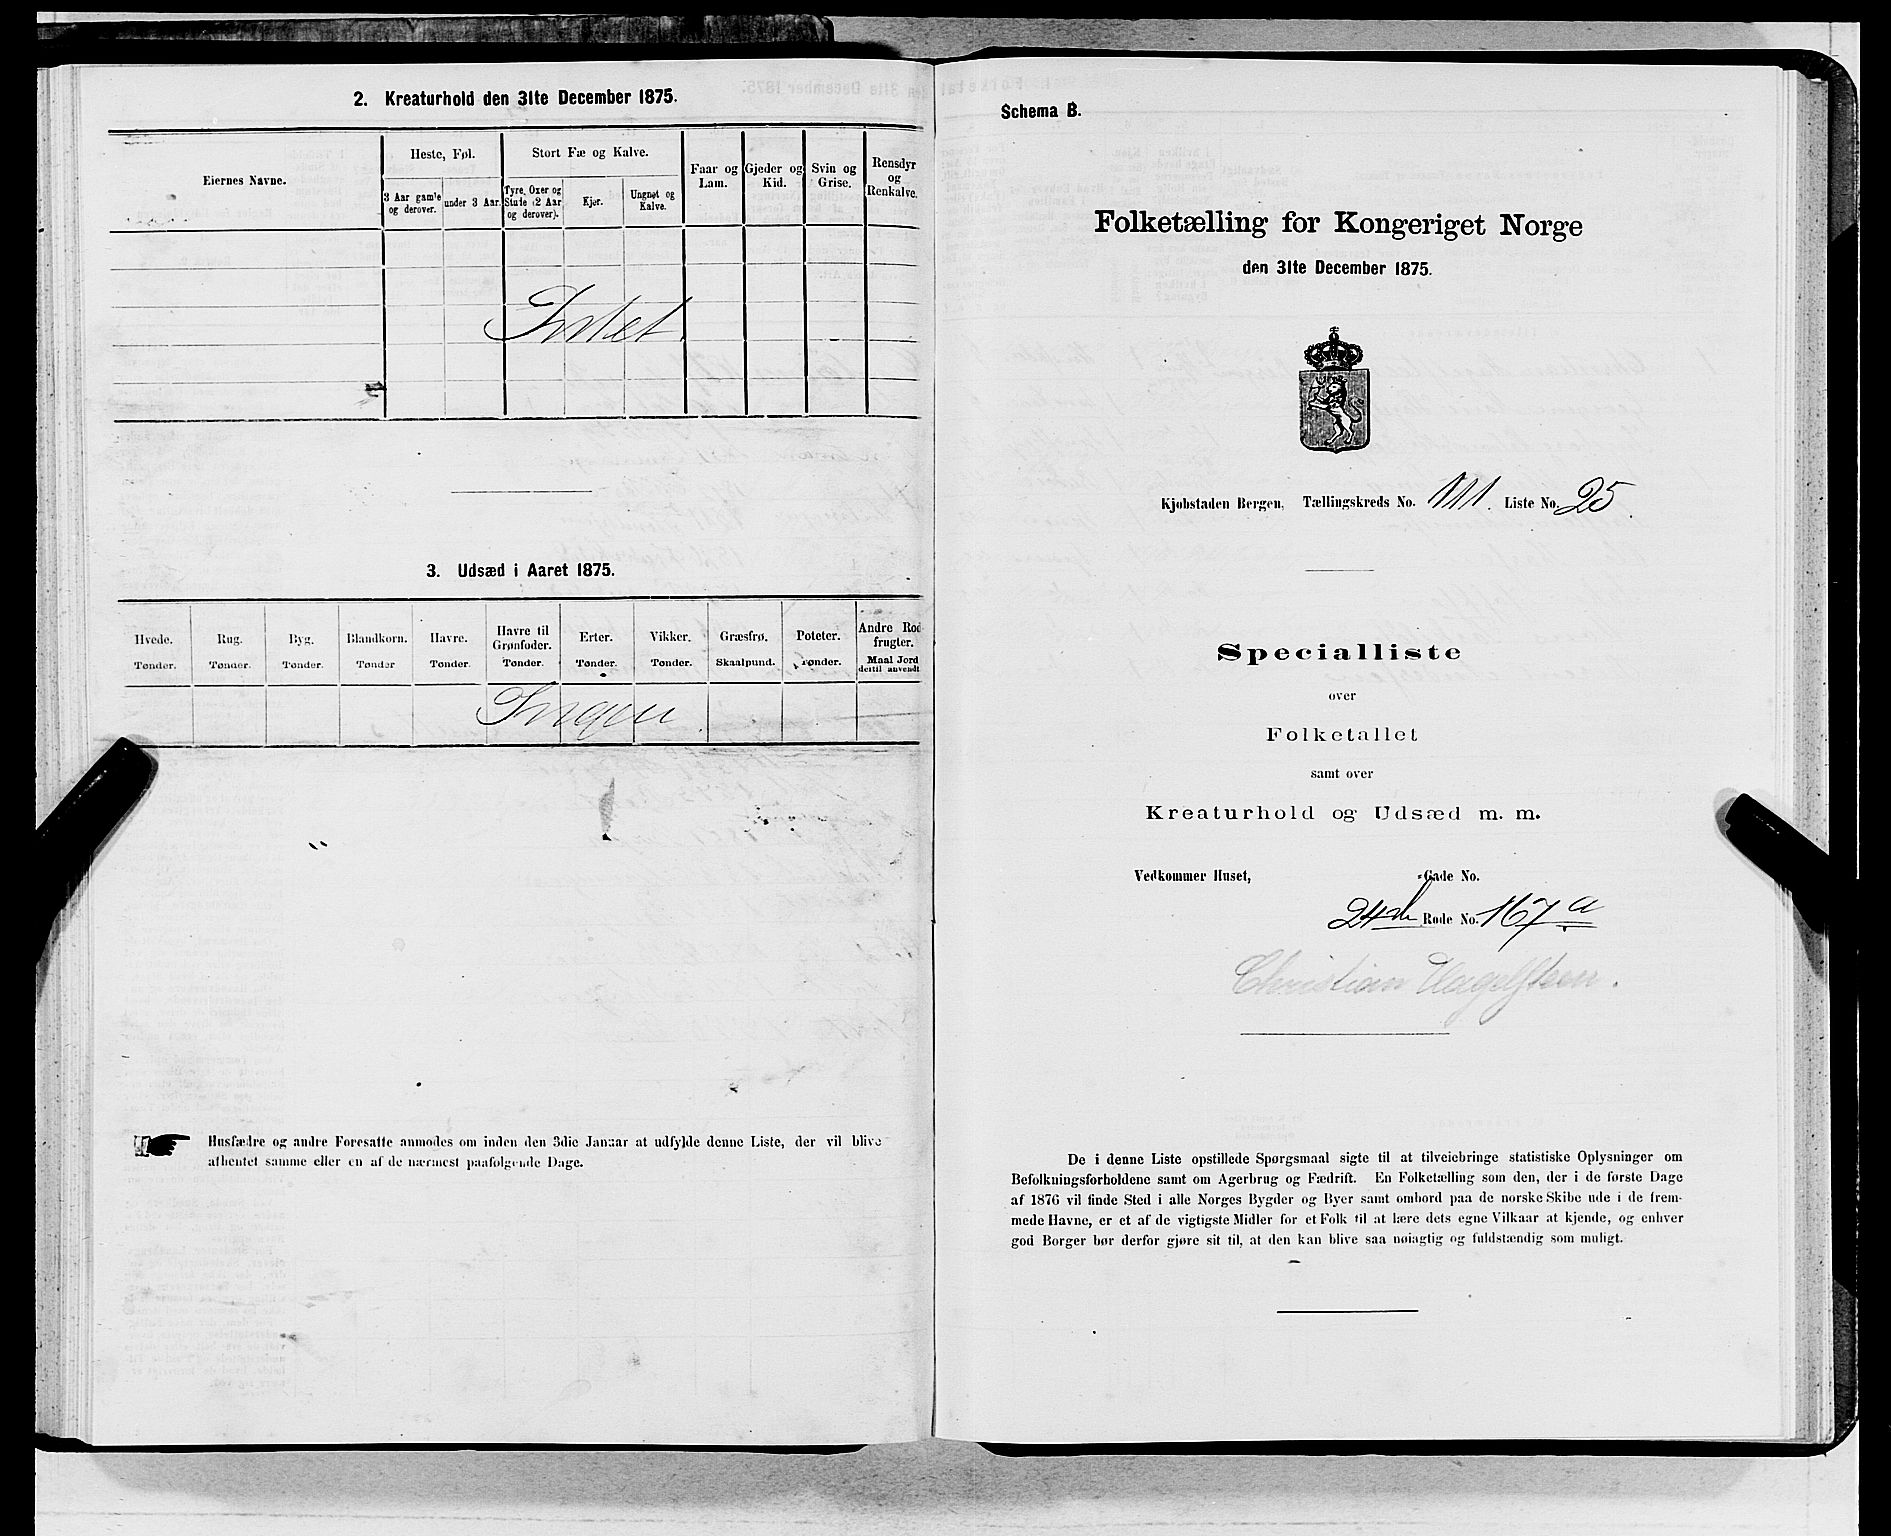 2. Kreaturhold den 31te December 1875.
Eiernes Navne.
Heste, Føl.
Stort Fæ og Kalve.
Faar og Lam.
Gjeder og Kid.
Svin og Grise.
Rensdyr og Renkalve.
3 Aar gamle og derover.
under 3 Aar.
Tyre, Oxer og Stude (2 Aar og derover).
Kjør.
Ungnøt og Kalve.
Intet.
3. Udsæd i Aaret 1875.
Hvede. Rug. Byg. Blandkorn. Havre. Havre til Grønfoder. Erter. Vikker. Græsfrø. Poteter. Andre Rodfrugter.
Tønder. Tønder. Tønder. Tønder Tønder. Tønder. Tønder. Tønder. Skaalpund. Tønder. Maal Jord dertil anvendt
Ingen.
Husfædre og andre Foresatte anmodes om inden den 3die Januar at udfylde denne Liste, der vil blive
afhentet samme eller en af de nærmest paafølgende Dage.
Schema B.
Folketælling for Kongeriget Norge
den 31te December 1875.
Kjøbstaden Bergen, Tællingskreds No. 111. Liste No. 25.
Specialliste
over
Folketallet
samt over
Kreaturhold og Udsæd m. m.
Vedkommer Huset, -Gade No.
24de Rode No. 167a
Christian
De i denne Liste opstillede Spørgsmaal sigte til at tilveiebringe statistiske Oplysninger om
Befolkningsforholdene samt om Agerbrug og Fædrift. En Folketælling som den, der i de første Dage
af 1876 vil finde Sted i alle Norges Bygder og Byer samt ombord paa de norske Skibe ude i de frem-
mede Havne, er et af de vigtigste Midler for et Folk til at lære dets egne Vilkaar at kjende, og enhver
god Borger bør derfor gjøre sit til, at den kan blive saa nøiagtig og fuldstændig som muligt.